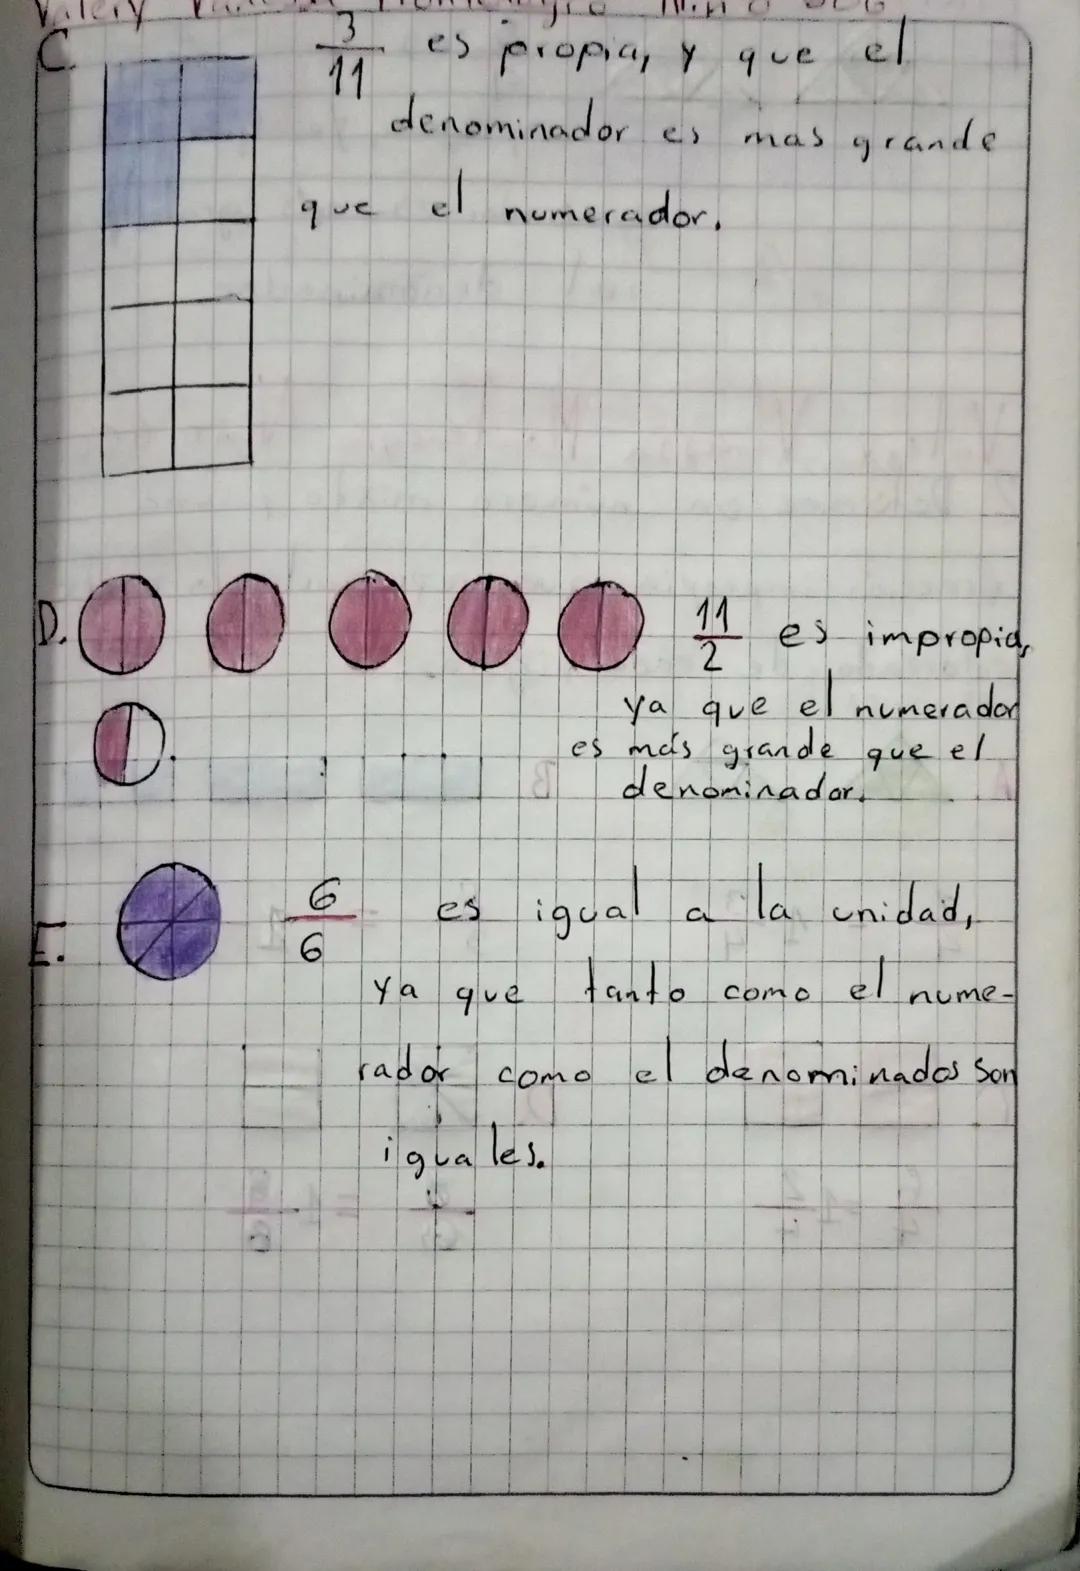 Valery
C.
3/11 es propia, y que el
denominador es mas grande
que el numerador.
D.
11/2 es impropia,
ya que el numerador
es más grande que el
denominador.
E.
6/6 es igual a la unidad,
ya que tanto como el nume-
rador como el denominados son
iguales.